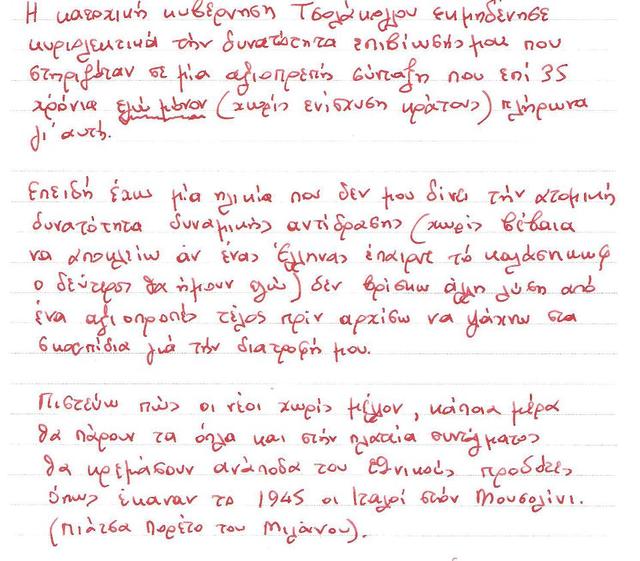 Η κατοχική κυβέρνηση Τσολάκογλου εκμηδένησε
κυριολεκτικά τήν δυνατότητα επιβίωσής μου που
στηριζόταν σε μία αξιοπρεπή σύνταξη που επί 35
χρόνια εγώ μόνον (χωρίς ενίσχυση κράτους) πλήρωνα
γι' αυτή.
Επειδή έχω μία ηλικία που δεν μου δίνει τήν ατομική
δυνατότητα δυναμικής αντίδρασης (χωρίς βέβαια
να αποκλείω άν ένας Έλληνας έπαιρνε τό καλάσνικωφ
ο δεύτερος θα ήμουν εγώ) δέν βρίσκω άλλη λύση από
ένα αξιοπρεπές τέλος πρίν αρχίσω να ψάχνω στα
σκουπίδια γιά τήν διατροφή μου.
Πιστεύω πώς οι νέοι χωρίς μέλλον, κάποια μέρα
θα πάρουν τα όπλα και στήν πλατεία συντάγματος
θα κρεμάσουν ανάποδα του εθνικούς προδότες
όπως έκαναν το 1945 οι Ιταλοί στόν Μουσολίνι.
(πιάτσα Πορέτο του Μιλάνου).